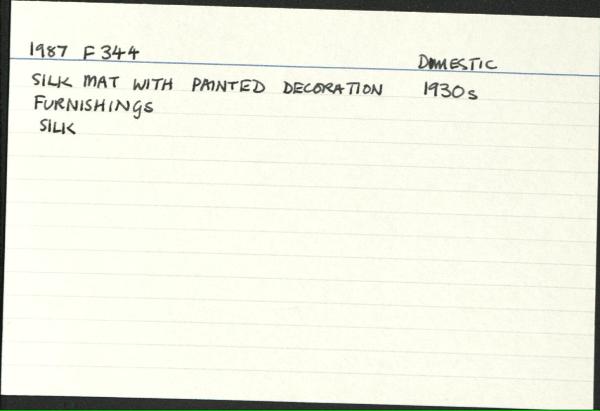 1987 F 344 DOMESTIC
SILK MAT WITH PAINTED DECORATION 1930s
FURNISHINGS
SILK